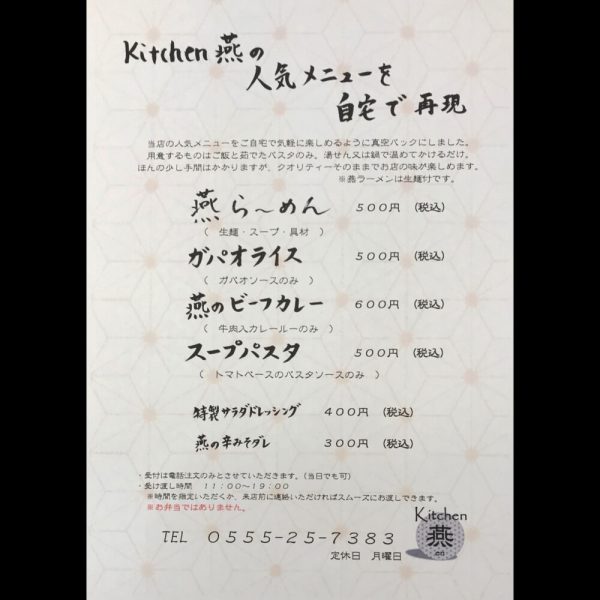 Kitchen 燕の
人気メニューを
自宅で再現
当店の人気メニューをご自宅で気軽に楽しめるように真空パックにしました。
用意するものはご飯と茹でたパスタのみ。湯せん又は鍋で温めてかけるだけ。
ほんの少し手間はかかりますが、クオリティーそのままでお店の味が楽しめます。
※燕ラーメンは生麺付です。
燕ら〜めん 500円 (税込)
( 生麺・スープ・具材 )
ガパオライス 500円 (税込)
( ガパオソースのみ )
燕のビーフカレー 600円 (税込)
( 牛肉入カレールーのみ )
スープパスタ 500円 (税込)
( トマトベースのパスタソースのみ )
特製サラダドレッシング 400円 (税込)
燕の辛みそダレ 300円 (税込)
・受付は電話注文のみとさせていただきます。(当日でも可)
・受け渡し時間 11:00〜19:00
※時間を指定いただくか、来店前に連絡いただければスムーズにお渡しできます。
※お弁当ではありません。
TEL 0555-25-7383
定休日 月曜日
Kitchen
燕
en